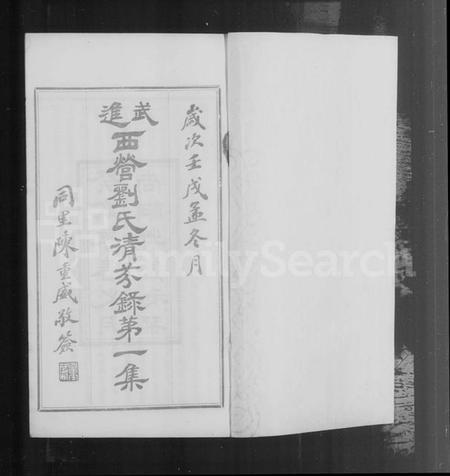 歲次壬戌孟冬月
武進
西營劉氏清芬錄第一集
同里陳重威敬簽
FamilySearch